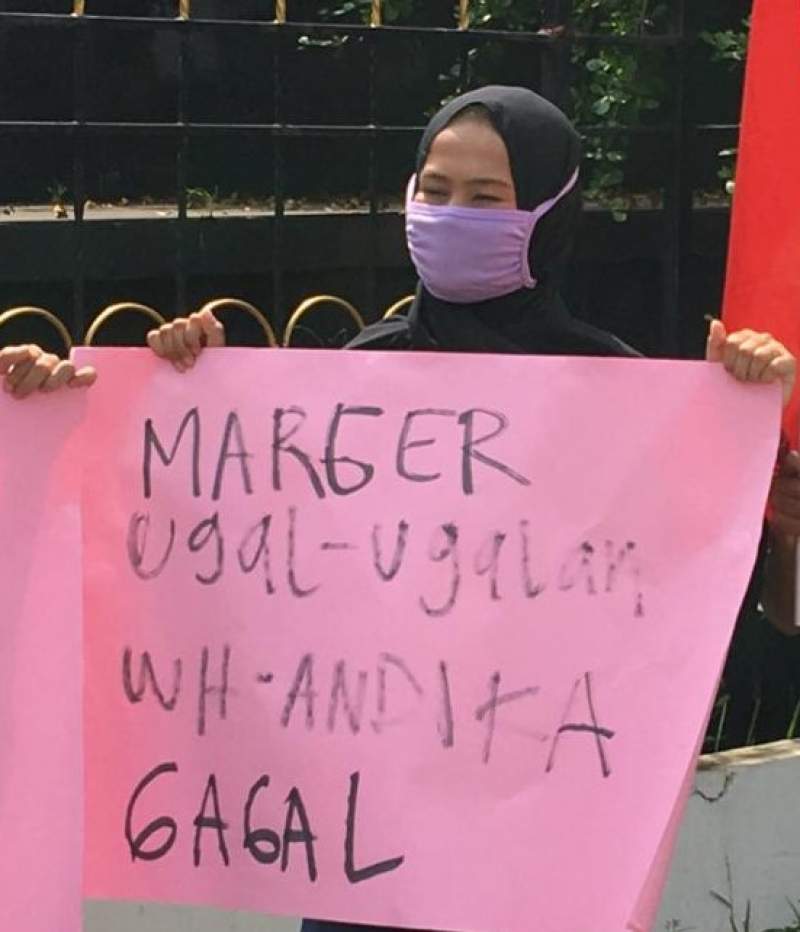 MARGER
ugal-ugalan
WH-ANDIKA
GAGAL